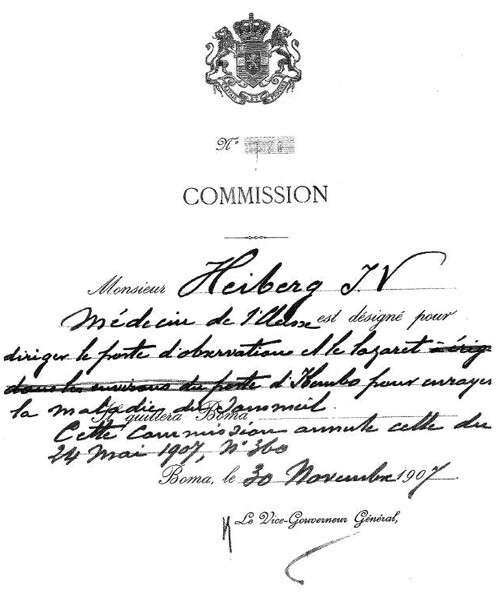 N°
COMMISSION
Monsieur Heiberg I V
Médecin de 1e Classe est désigné pour
diriger le poste d'observation et le lazaret à érig
dans les environs du poste d'Ibembo pour enrayer
la maladie du sommeil.
Il quittera Boma
Cette commission annule celle du
24 Mai 1907, N° 360
Boma, le 30 Novembre 1907
Le Vice-Gouverneur Général,